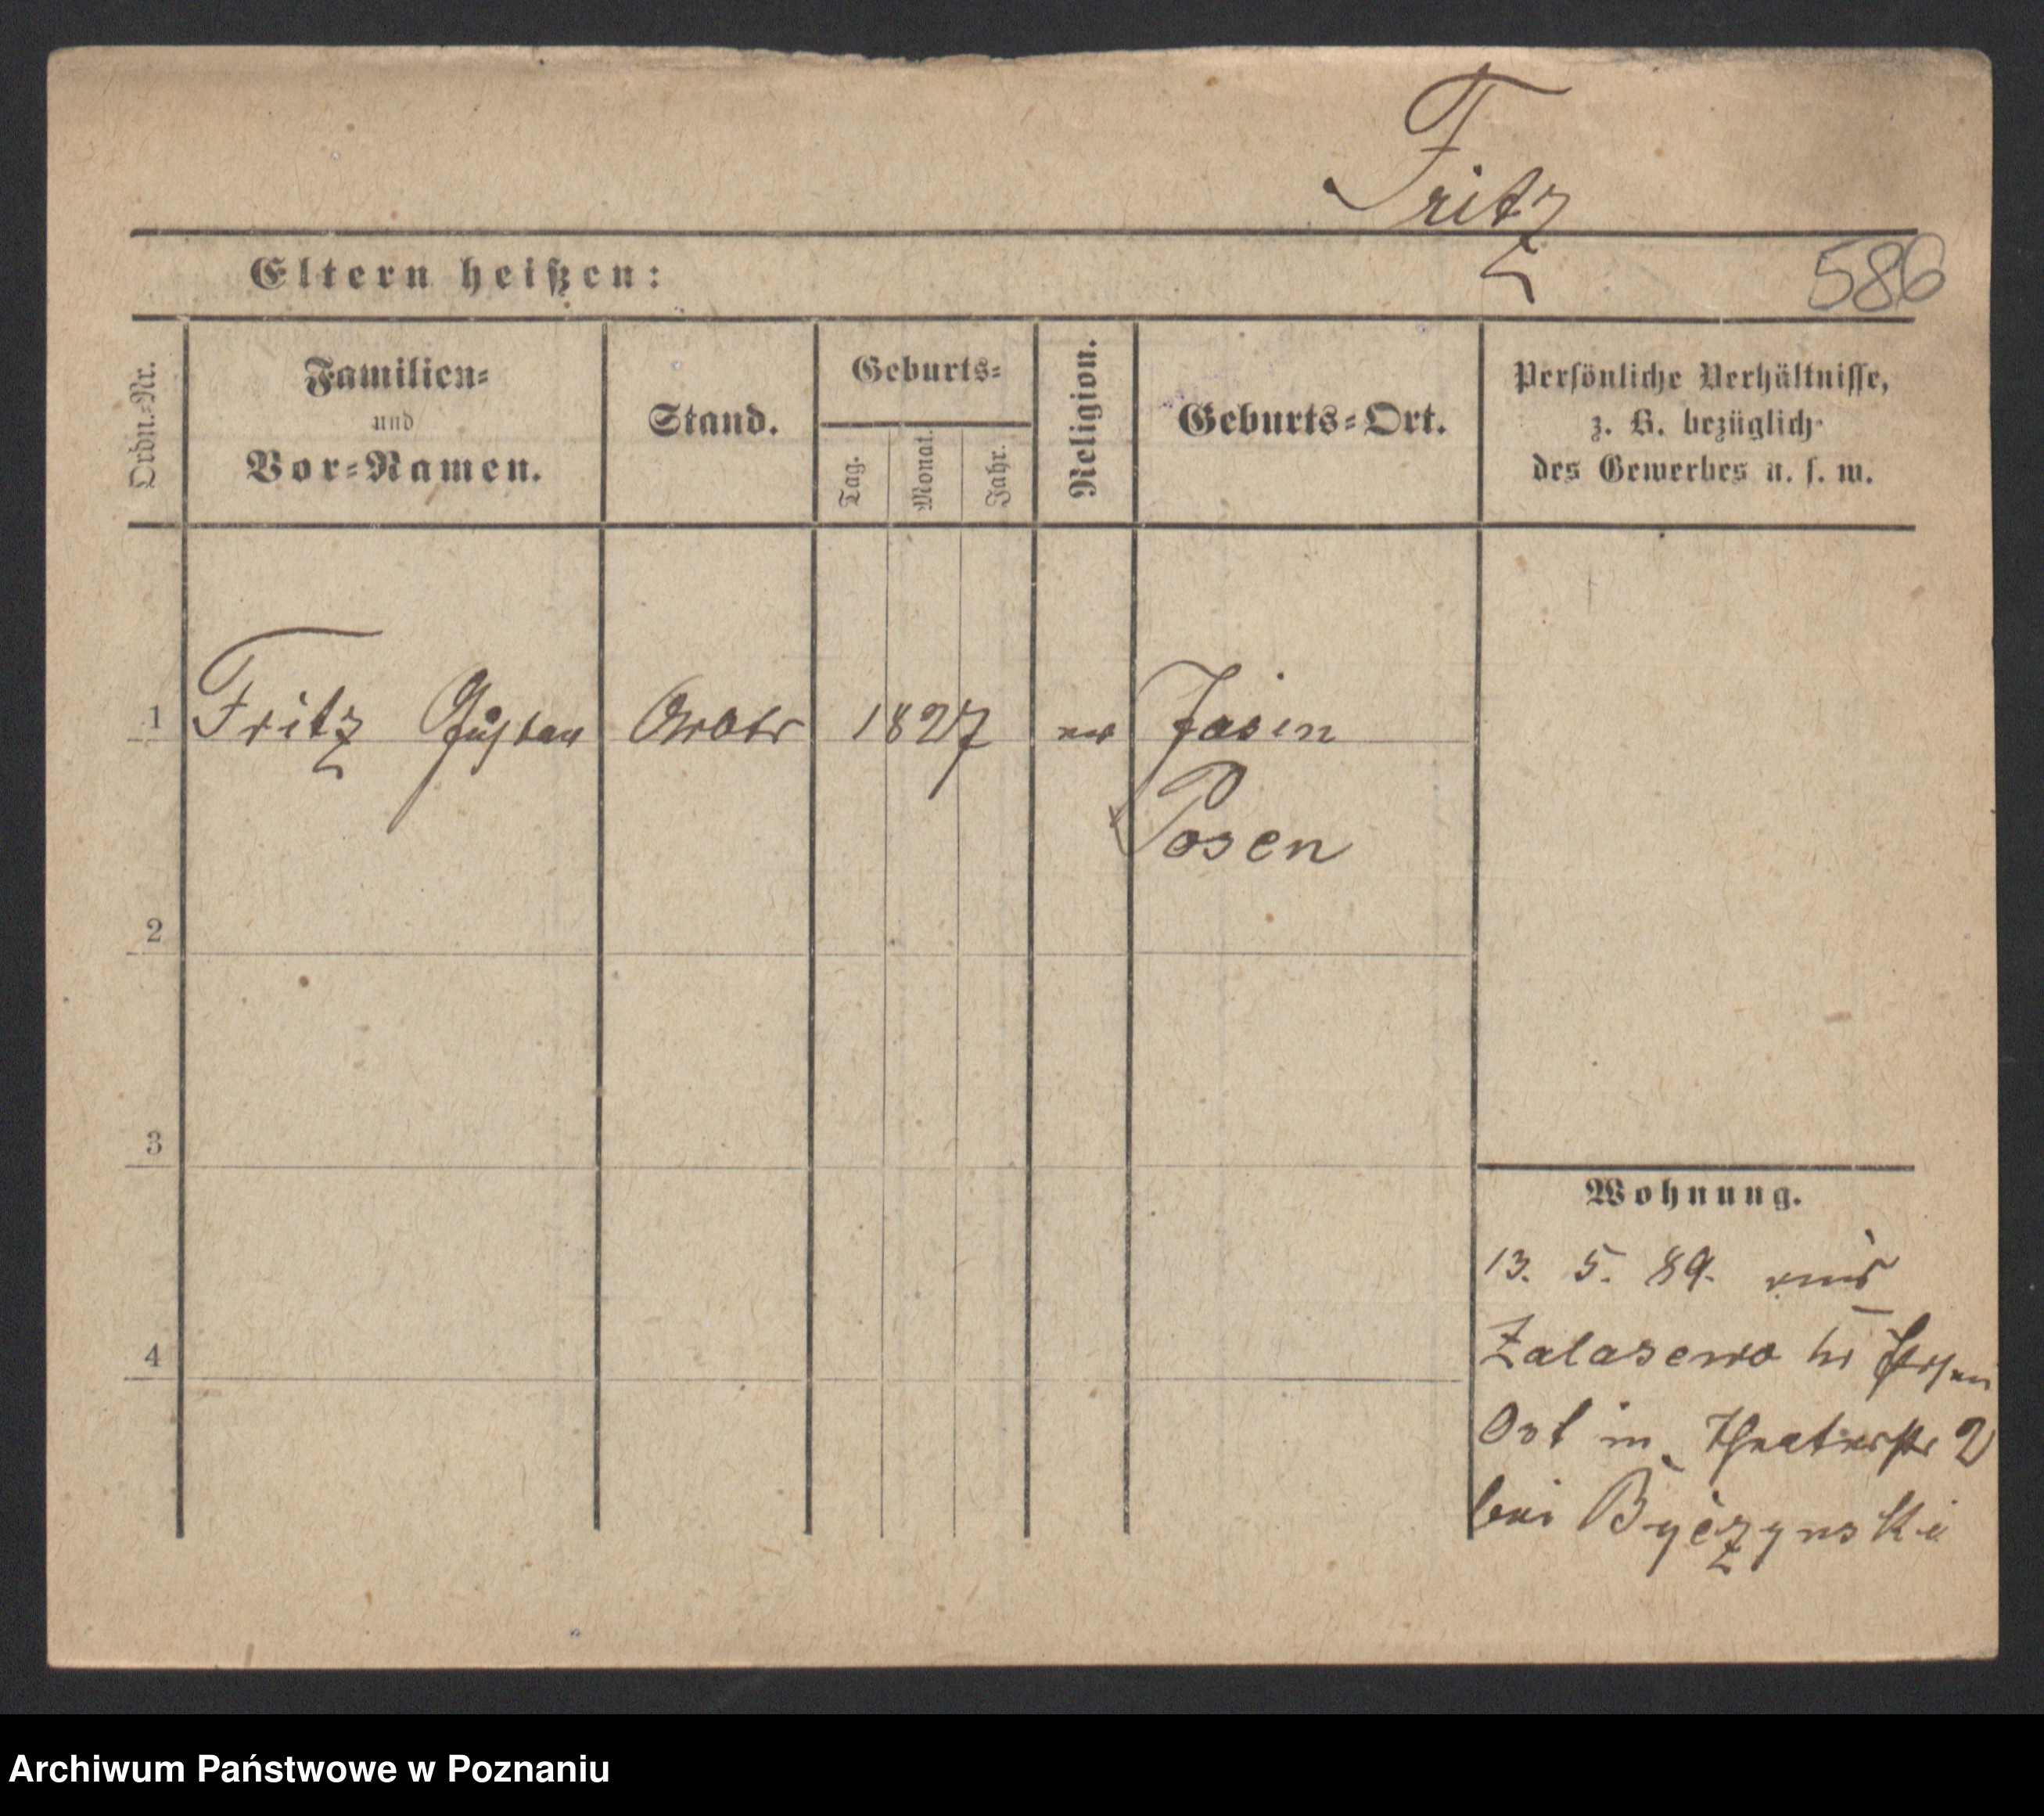 Fritz
Eltern heißen:
586
Ordn.-Nr.
Familien-
und
Vor-Namen.
Stand.
Geburts-
Tag.
Monat.
Jahr.
Religion.
Geburts-Ort.
Persönliche Verhältnisse,
z. B. bezüglich
des Gewerbes u. s. w.
1 Fritz Gustav 1827 Jasin
Posen
2
3
4
Wohnung.
13. 5. 89. aus
Zalasewo
Ost in Theaterstr 2
bei Byczynski
Archiwum Państwowe w Poznaniu